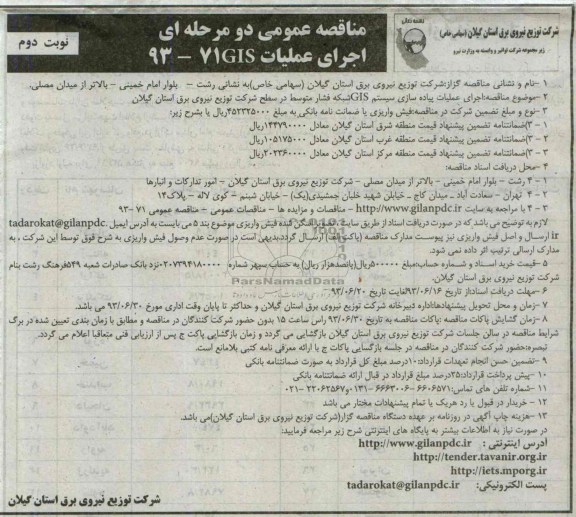 شرکت توزیع نیروی برق استان گیلان (سهامی خاص)
زیر مجموعه شرکت توانیر و وابسته به وزارت نیرو
مناقصه عمومی دو مرحله ای
اجرای عملیات GIS ۷۱ – ۹۳
نوبت دوم
۱ -نام و نشانی مناقصه گزاز:شرکت توزیع نیروی برق استان گیلان (سهامی خاص)به نشانی رشت – بلوار امام خمینی – بالاتر از میدان مصلی،
۲-موضوع مناقصه:اجرای عملیات پیاده سازی سیستم GISشبکه فشار متوسط در سطح شرکت توزیع برق استان گیلان
۳-نوع و مبلغ تضمین شرکت در مناقصه:فیش واریزی یا ضمانت نامه بانکی به مبلغ ۴۵۲۳۲۵۰۰۰ریال یا بشرح زیر:
۱- ۳)ضمانتنامه تضمین پیشنهاد قیمت منطقه شرق استان گیلان معادل ۱۴۴۷۹۰۰۰۰ریال
۲- ۳)ضمانتنامه تضمین پیشنهاد قیمت منطقه غرب استان گیلان معادل ۱۰۵۱۷۵۰۰۰ریال
۳- ۳)ضمانتنامه تضمین پیشنهاد قیمت منطقه مرکز استان گیلان معادل ۲۰۲۳۶۰۰۰۰ریال
۴-محل دریافت اسناد مناقصه:
۱- ۴ رشت – بلوار امام خمینی – بالاتر از میدان مصلی – شرکت توزیع نیروی برق استان گیلان – امور تدارکات و انبارها
۲- ۴ تهران – سعادت آباد – میدان کاج – خیابان شهید خلبان جمشیدی(یک) – خیابان شبنم – کوی لاله – پلاک۱۴
۳- ۴ با مراجعه به سایت http://www.gilanpdc.ir – مناقصات و مزایده ها – مناقصات عمومی – مناقصه عمومی ۷۱ -۹۳
لازم به توضیح می باشد که در صورت دریافت اسناد از طریق سایت، اسکن فیش واریزی موضوع بند ۵ می بایست به آدرس ایمیل tadarokat@gilanpdc.
ir ارسال و اصل فیش واریزی نیز پیوست مدارک مناقصه (پاکت الف) ارسال گردد.بدیهی است در صورت عدم وصول فیش واریزی به شرح فوق توسط این شرکت ، به
مدارک ارسالی ترتیب اثر داده نمی شود.
۵-قیمت خرید اسناد و شماره حساب:مبلغ ۵۰۰۰۰۰ریال(پانصدهزار ریال) به حساب سپهر شماره ۰۲۰۷۳۹۴۱۸۰۰۰نزد بانک صادرات شعبه ۵۴۹فرهنگ رشت بنام
شرکت توزیع نیروی برق استان گیلان.
۶-مهلت دریافت اسناد:از تاریخ ۹۳/۰۶/۱۶لغایت تاریخ ۹۳/۰۶/۲۰
۷-زمان و محل تحویل پیشنهادها:اداره دبیرخانه شرکت توزیع نیروی برق استان گیلان و حداکثر تا پایان وقت اداری مورخ ۹۳/۰۶/۳۰ می باشد.
۸-زمان گشایش پاکات مناقصه :پاکات مناقصه به تاریخ ۹۳/۰۶/۳۰ راس ساعت ۱۵ بدون حضور شرکت کنندگان در مناقصه و مطابق با زمان بندی تعیین شده در برگ
شرایط مناقصه در سالن جلسات شرکت توزیع نیروی برق استان گیلان بازگشایی می گردد و زمان بازگشایی پاکت ج پس از ارزیابی فنی متعاقبا اعلام می گردد.
تبصره:حضور شرکت کنندگان در مناقصه در جلسه بازگشایی پاکات ج با ارائه معرفی نامه کتبی بلامانع است.
۹-تضمین حسن انجام تعهدات قرارداد:۱۰درصد مبلغ کل قرارداد به صورت ضمانتنامه بانکی
۱۰-پیش پرداخت قرارداد:۲۵درصد مبلغ قرارداد در قبال ارائه ضمانتنامه بانکی
۱۱-شماره تلفن های تماس:۶۶۰۶۵۷۱- ۶۶۶۳۰۰۶-۰۱۳۱ و ۲۲۰۶۲۵۶۷-۰۲۱
۱۲-خریدار در قبول یا رد هریک یا تمام پیشنهادات مختار می باشد
۱۳-هزینه چاپ آگهی در روزنامه بر عهده دستگاه مناقصه گزار(شرکت توزیع نیروی برق استان گیلان)می باشد.
در صورت نیاز به اطلاعات بیشتر به پایگاه های اینترنتی شرح زیر مراجعه فرمایید:
آدرس اینترنتی : http://www.gilanpdc.ir
http://tender.tavanir.org.ir
http://iets.mporg.ir
پست الکترونیکی: tadarokat@gilanpdc.ir
شرکت توزیع نیروی برق استان گیلان
ParsNamadData